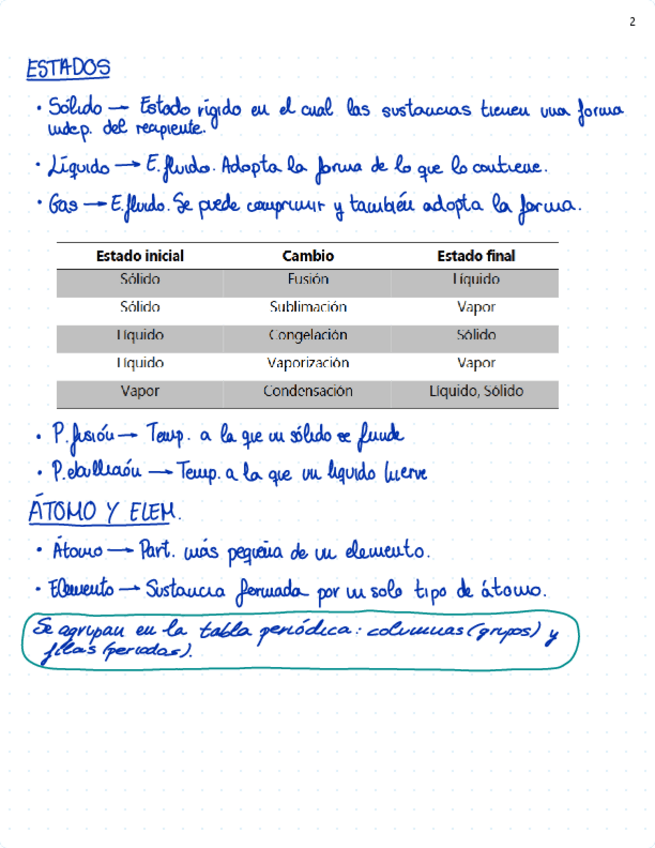 2
ESTADOS
· Sólido → Estado rígido en el cual las sustancias tienen una forma
indep. del recipiente.
· Líquido → E. fluido. Adopta la forma de lo que lo contiene.
· Gas → E. fluido. Se puede comprimir y también adopta la forma.
Estado inicial Cambio Estado final
Sólido Fusión Líquido
Sólido Sublimación Vapor
Líquido Congelación Sólido
Líquido Vaporización Vapor
Vapor Condensación Líquido, Sólido
· P. fusión → Temp. a la que un sólido se funde
· P. ebullición → Temp. a la que un líquido hierve
ÁTOMO Y ELEM.
· Átomo → Part. más pequeña de un elemento.
· Elemento → Sustancia formada por un solo tipo de átomo.
Se agrupan en la tabla periódica: columnas (grupos) y
filas (periodos).